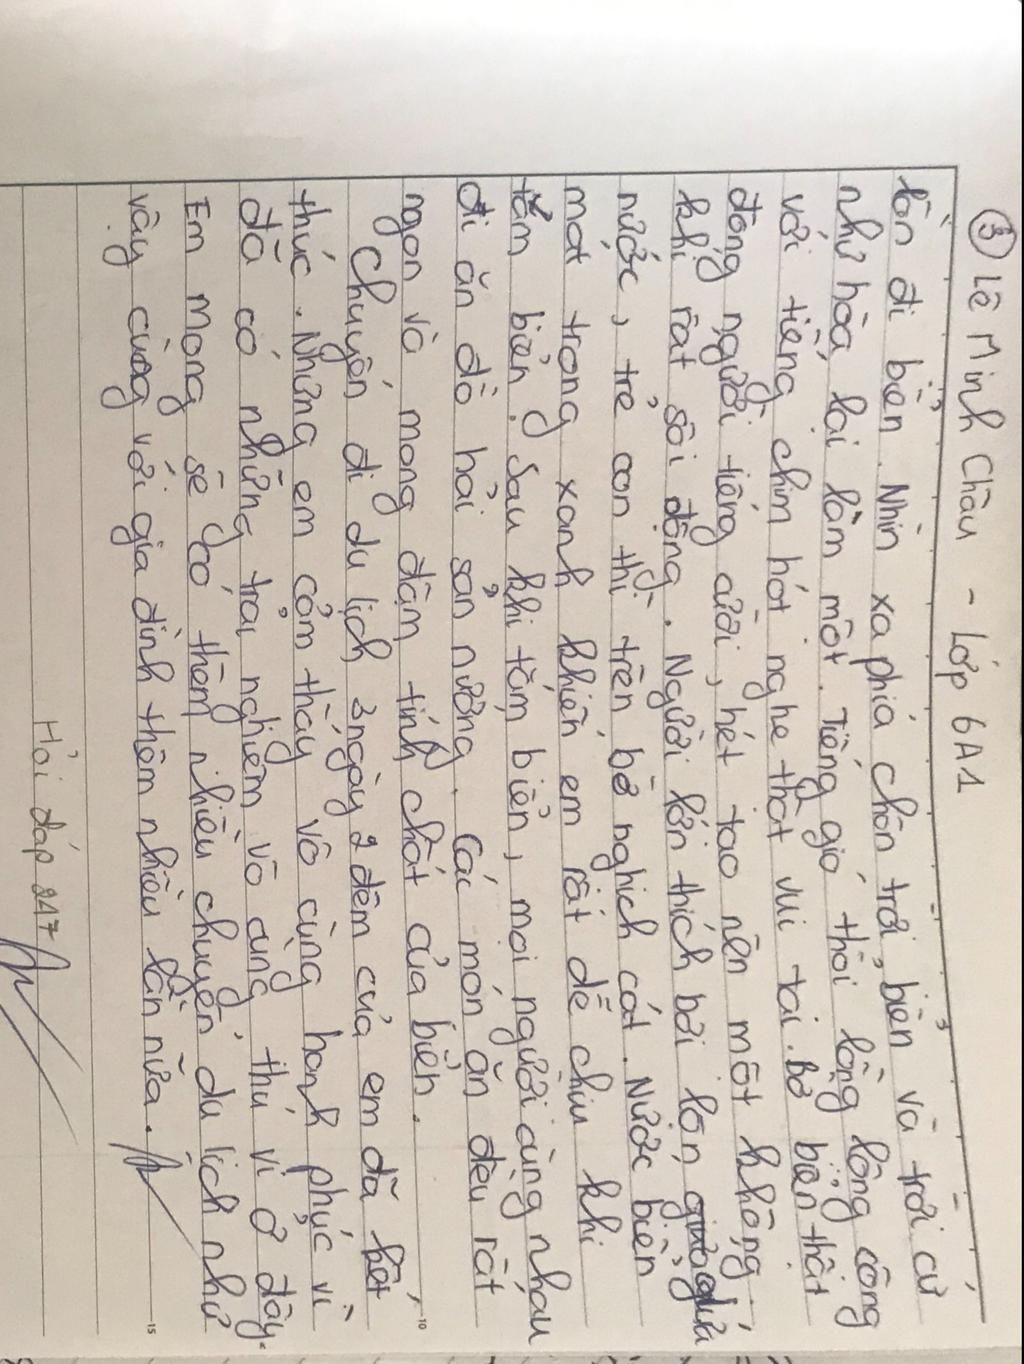 ③ Lê Minh Châu - Lớp 6A1
lần đi biển. Nhìn xa phía chân trời, biển và trời cứ
như hòa lại làm một. Tiếng gió thổi lồng lộng cộng
với tiếng chim hót nghe thật vui tai. Bờ biển thật
đông người tiếng cười, hét tạo nên một không
khí rất sôi động. Người lớn thích bơi lặn giữa
nước, trẻ con thì trên bờ nghịch cát. Nước biển
mát trong xanh khiến em rất dễ chịu khi
tắm biển. Sau khi tắm biển, mọi người cùng nhau
đi ăn đồ hải sản nướng. Các món ăn đều rất
ngon và mang đậm tính chất của biển.
Chuyến đi du lịch 3 ngày 2 đêm của em đã kết
thúc. Nhưng em cảm thấy vô cùng hạnh phúc vì
đã có những trải nghiệm vô cùng thú vị ở đây.
Em mong sẽ có thêm nhiều chuyến du lịch như
vậy cùng với gia đình thêm nhiều lần nữa.
Hỏi đáp 247
10
15